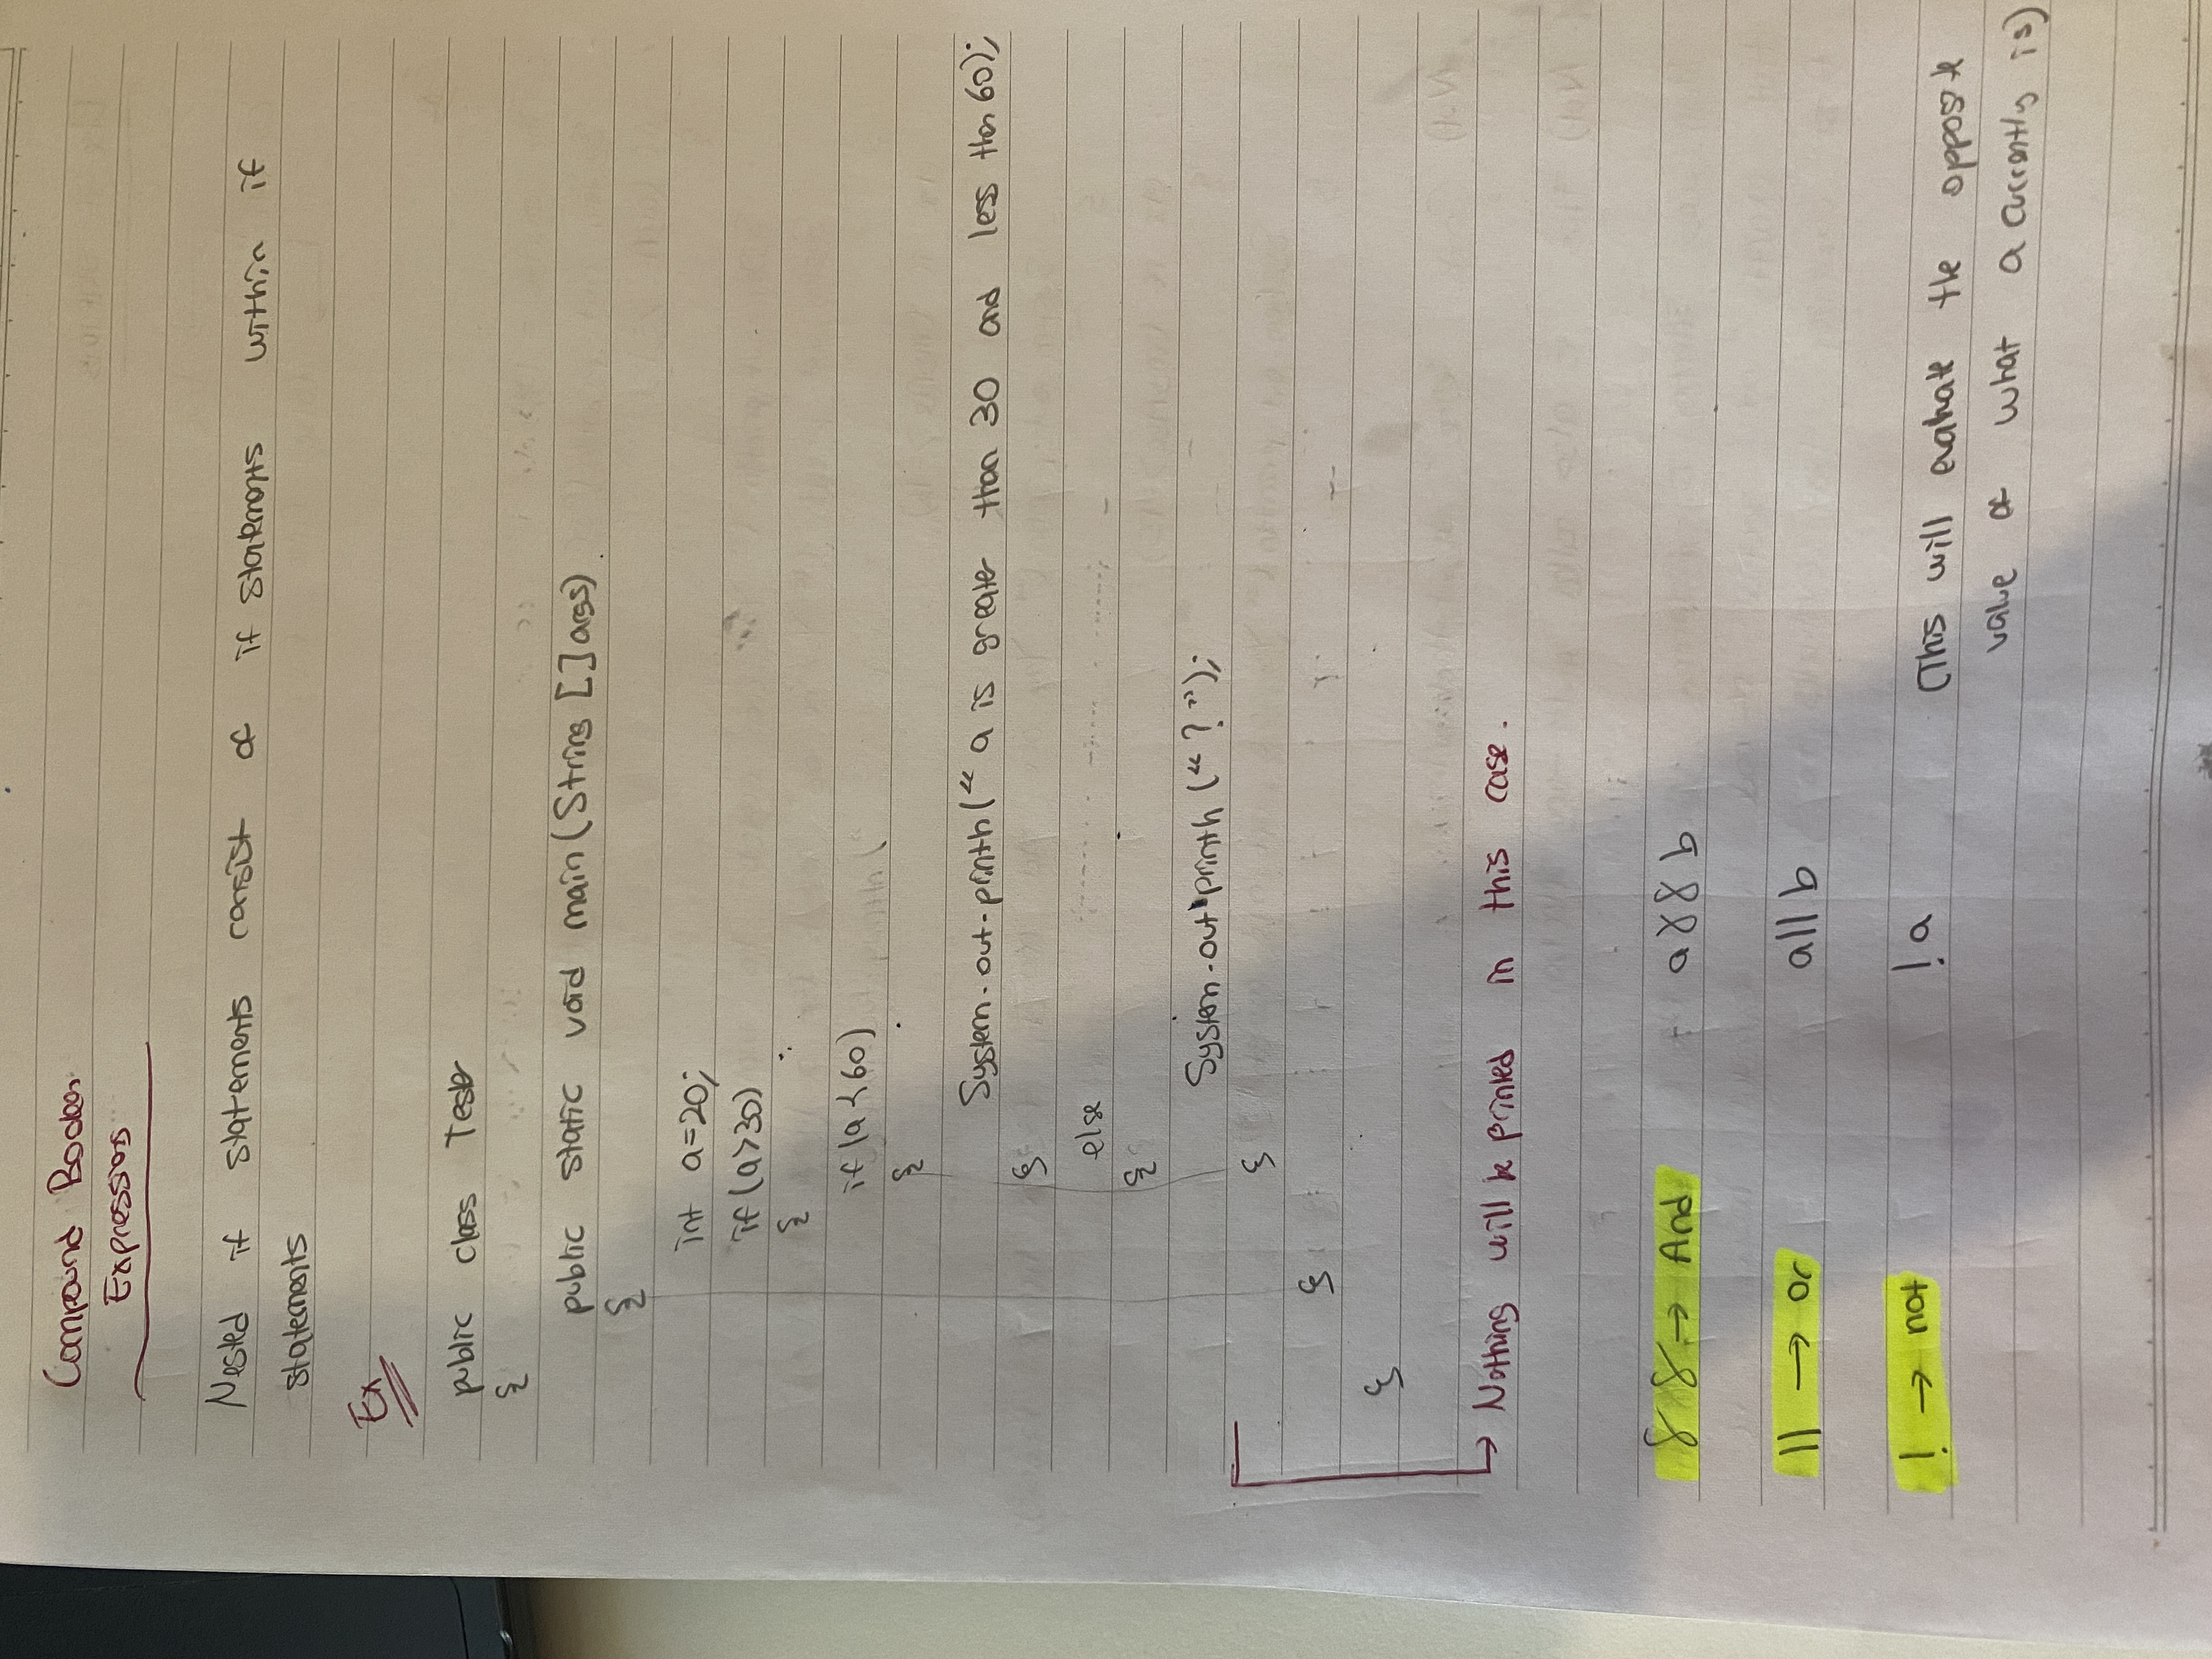 Compound Boolean
Expressions
Nested if statements consist of if statements within if
statements
Ex
public class Tester
{
public static void main(String []args)
{
int a=20;
if(a>30)
{
if(a<60)
{
System.out.println(“ a is greater than 30 and less than 60);
}
else
{
System.out.println (“ ? ”);
}
}
}
→ Nothing will be printed in this case.
&& → And a && b
|| → or a || b
! → not !a (This will evaluate the opposite
value of what a currently is)